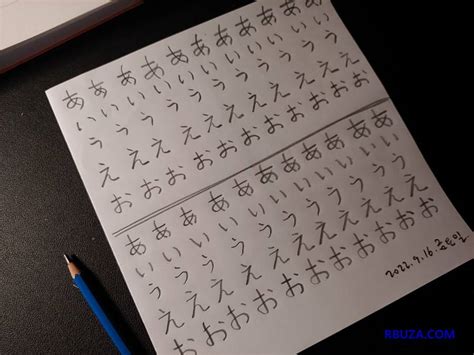 ああああああああああ
いいいいいいいいいい
うううううううううう
ええええええええええ
おおおおおおおおおお
ああああああああああ
いいいいいいいいいい
うううううううううう
ええええええええええ
おおおおおおおおおお
2022.9.16.금요일
RBUZA.COM